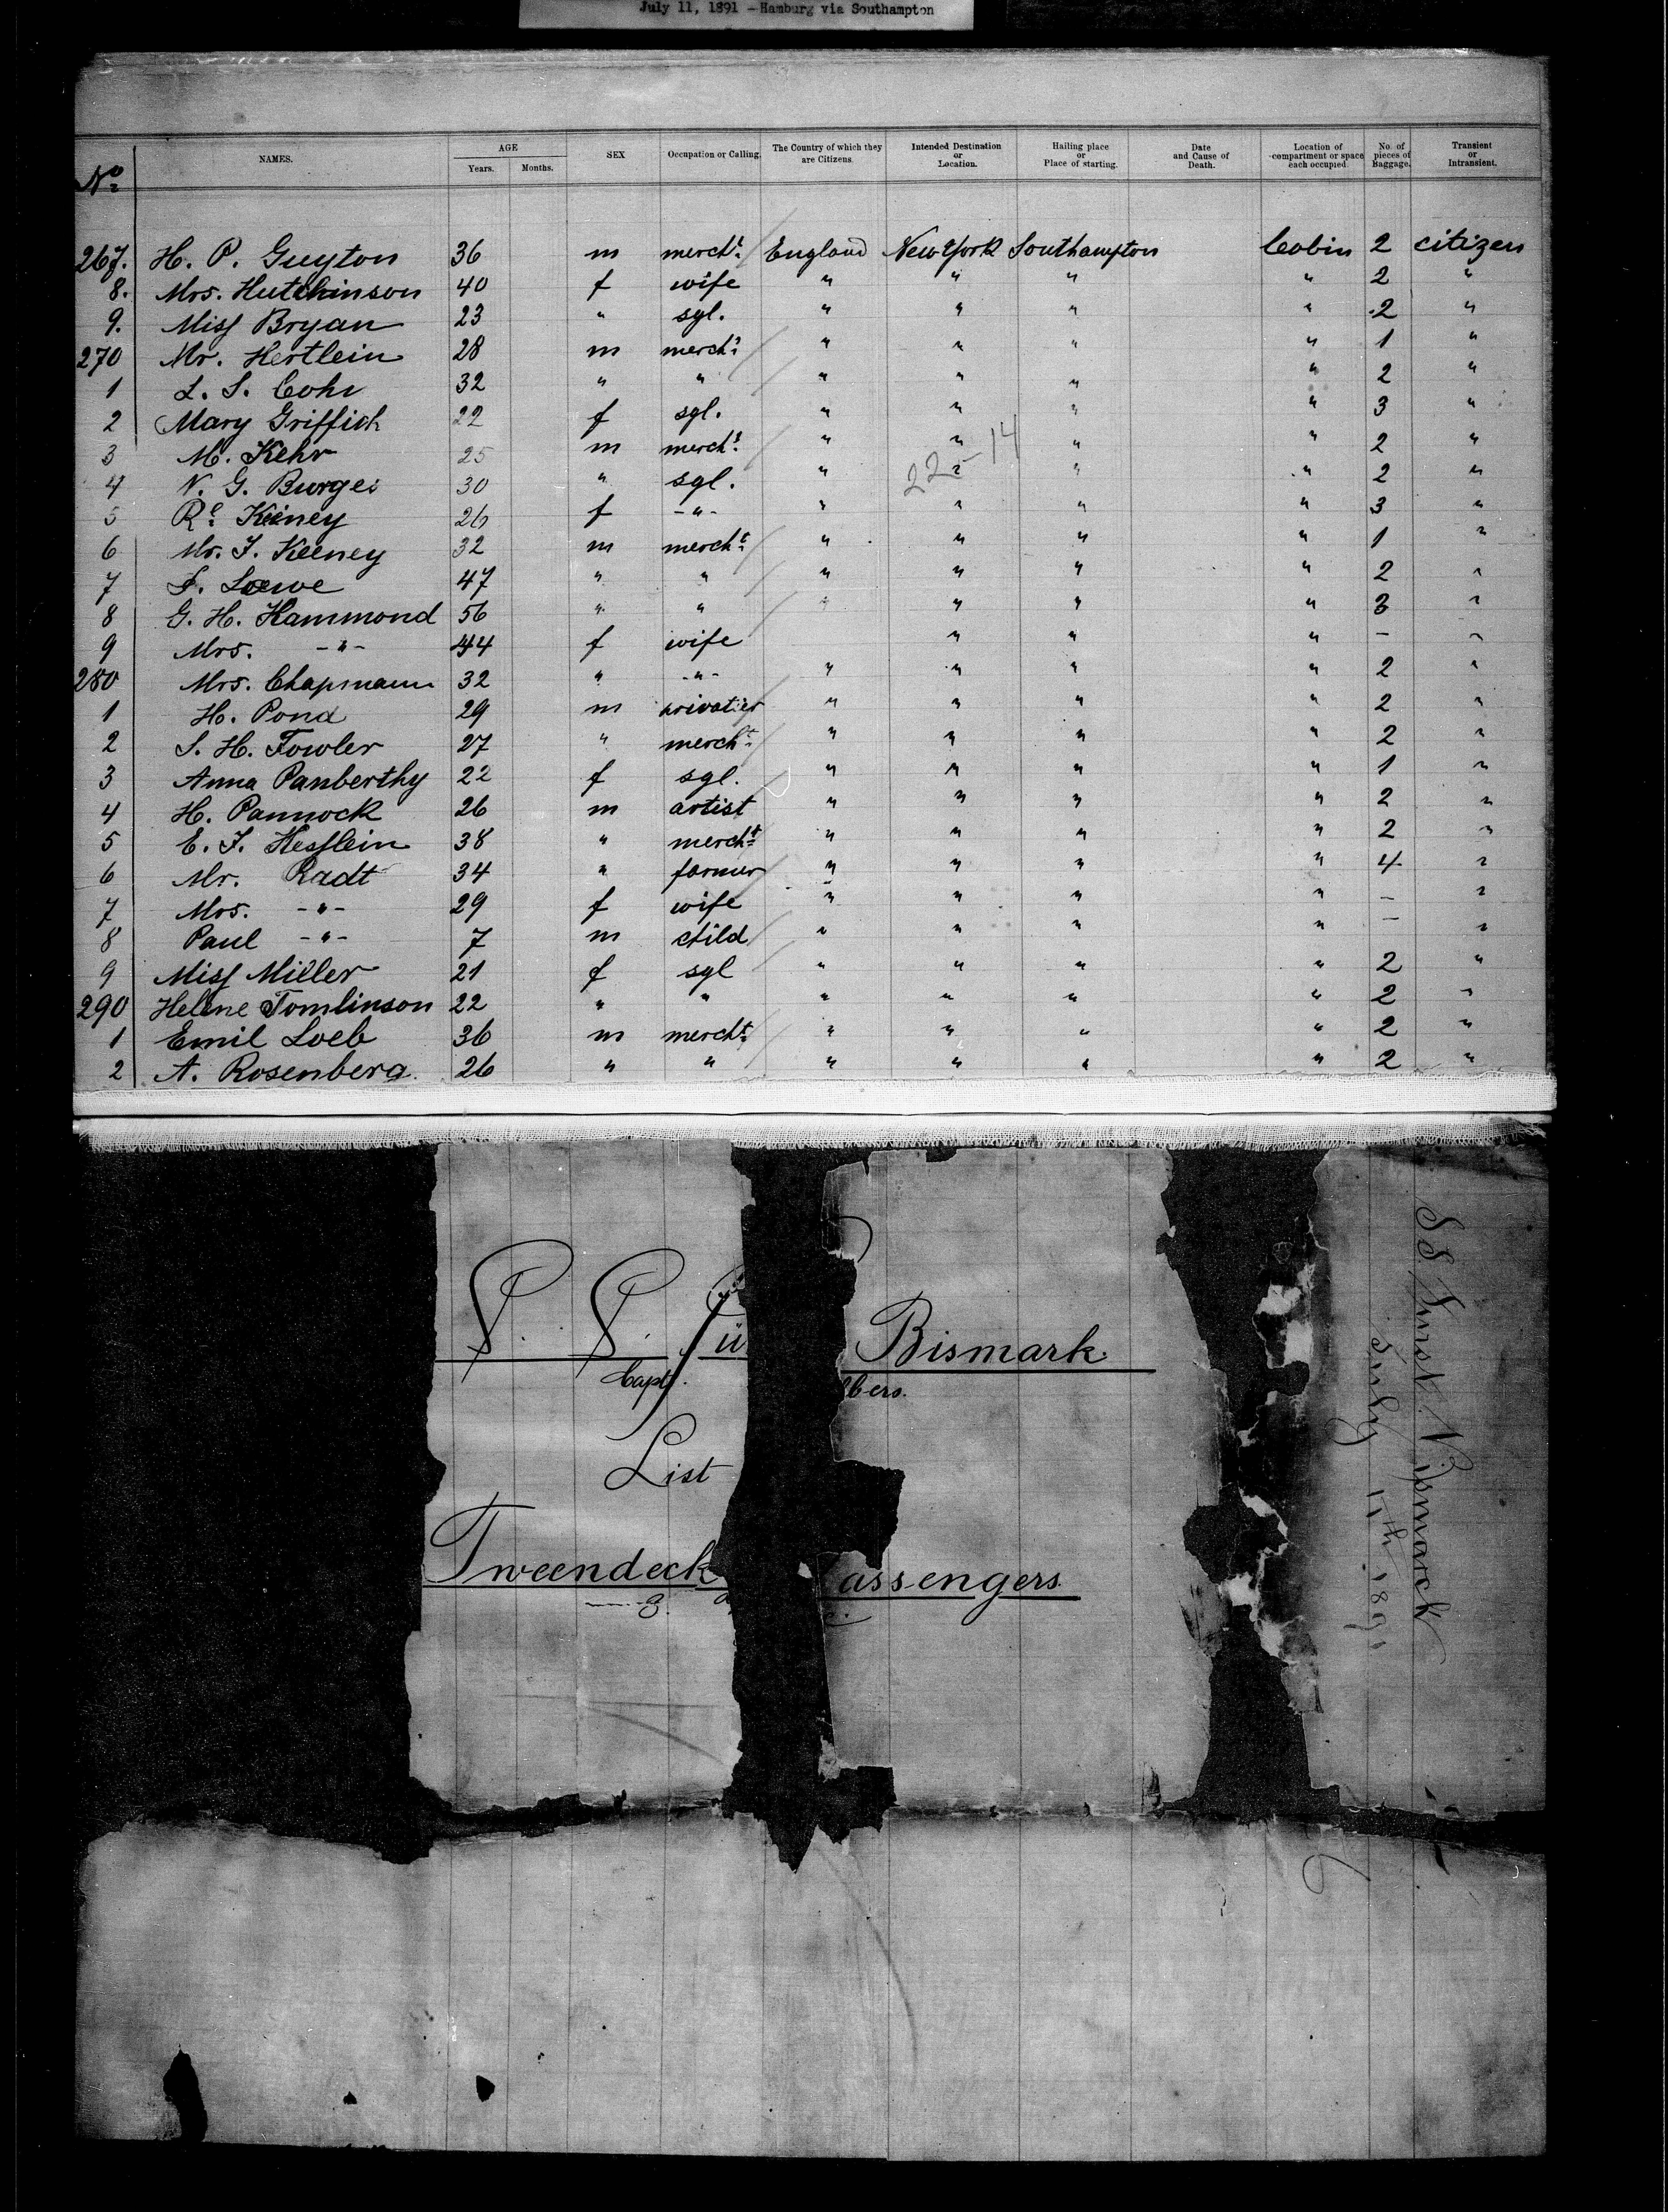 July 11, 1891 - Hamburg via Southampton
No NAMES. AGE Years. Months. SEX Occupation or Calling. The Country of which they are Citizens. Intended Destination or Location. Hailing place or Place of starting. Date and Cause of Death. Location of compartment or space each occupied. No. of pieces of Baggage. Transient or Intransient.
267. H. P. Guyton 36 m mercht England New York Southampton Cabin 2 citizen
8. Mrs. Hutchinson 40 f wife " " " " 2 "
9. Miss Bryan 23 " sgl. " " " " 2 "
270 Mr. Hertlein 28 m mercht " " " " 1 "
1 L. S. Cohn 32 " " " " " " 2 "
2 Mary Griffich 22 f sgl. " " " " 3 "
3 M. Kehr 25 m mercht " " " " 2 "
225-14
4 N. G. Burges 30 " sgl. " " " " 2 "
5 Rc Keeney 26 f -"- " " " " 3 "
6 Mr. F. Keeney 32 m mercht " " " " 1 "
7 S. Loewe 47 " " " " " " 2 "
8 G. H. Hammond 56 " " " " " " 3 "
9 Mrs. -"- 44 f wife " " " - "
280 Mrs. Chapmann 32 " -"- " " " " 2 "
1 H. Pond 29 m privatier " " " " 2 "
2 S. H. Fowler 27 " mercht " " " " 2 "
3 Anna Panberthy 22 f sgl. " " " " 1 "
4 H. Pannock 26 m artist " " " " 2 "
5 E. F. Hesslein 38 " mercht " " " " 2 "
6 Mr. Radt 34 " farmer " " " " 4 "
7 Mrs. -"- 29 f wife " " " " - "
8 Paul -"- 7 m child " " " " - "
9 Miss Miller 21 f sgl " " " " 2 "
290 Helene Tomlinson 22 " " " " " " 2 "
1 Emil Loeb 36 m mercht " " " " 2 "
2 A. Rosenberg. 26 " " " " " " 2 "
S. S. Fü Bismark.
Capt. lbers.
List
Tweendeck assengers.
S.S. Furst. Bismarck
July 11th 1891